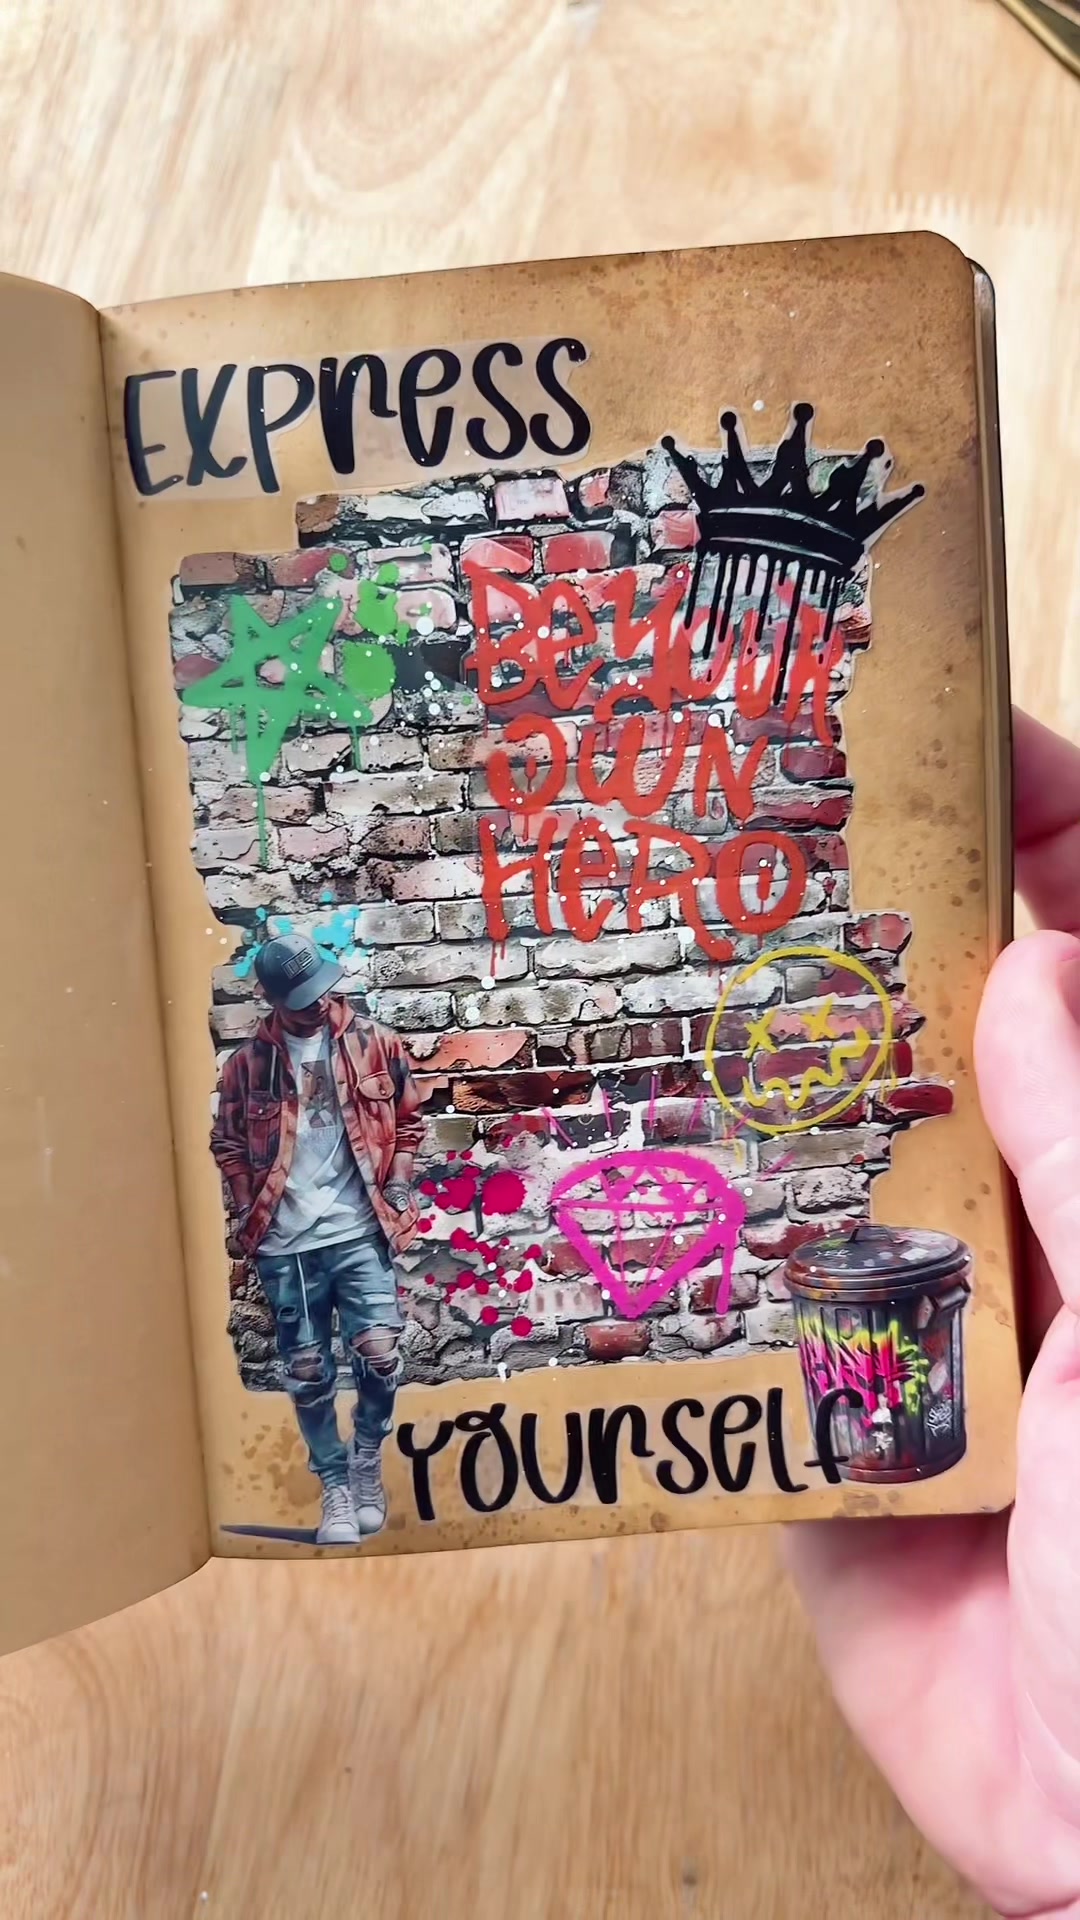 Express
Be your
own
Hero
yourself